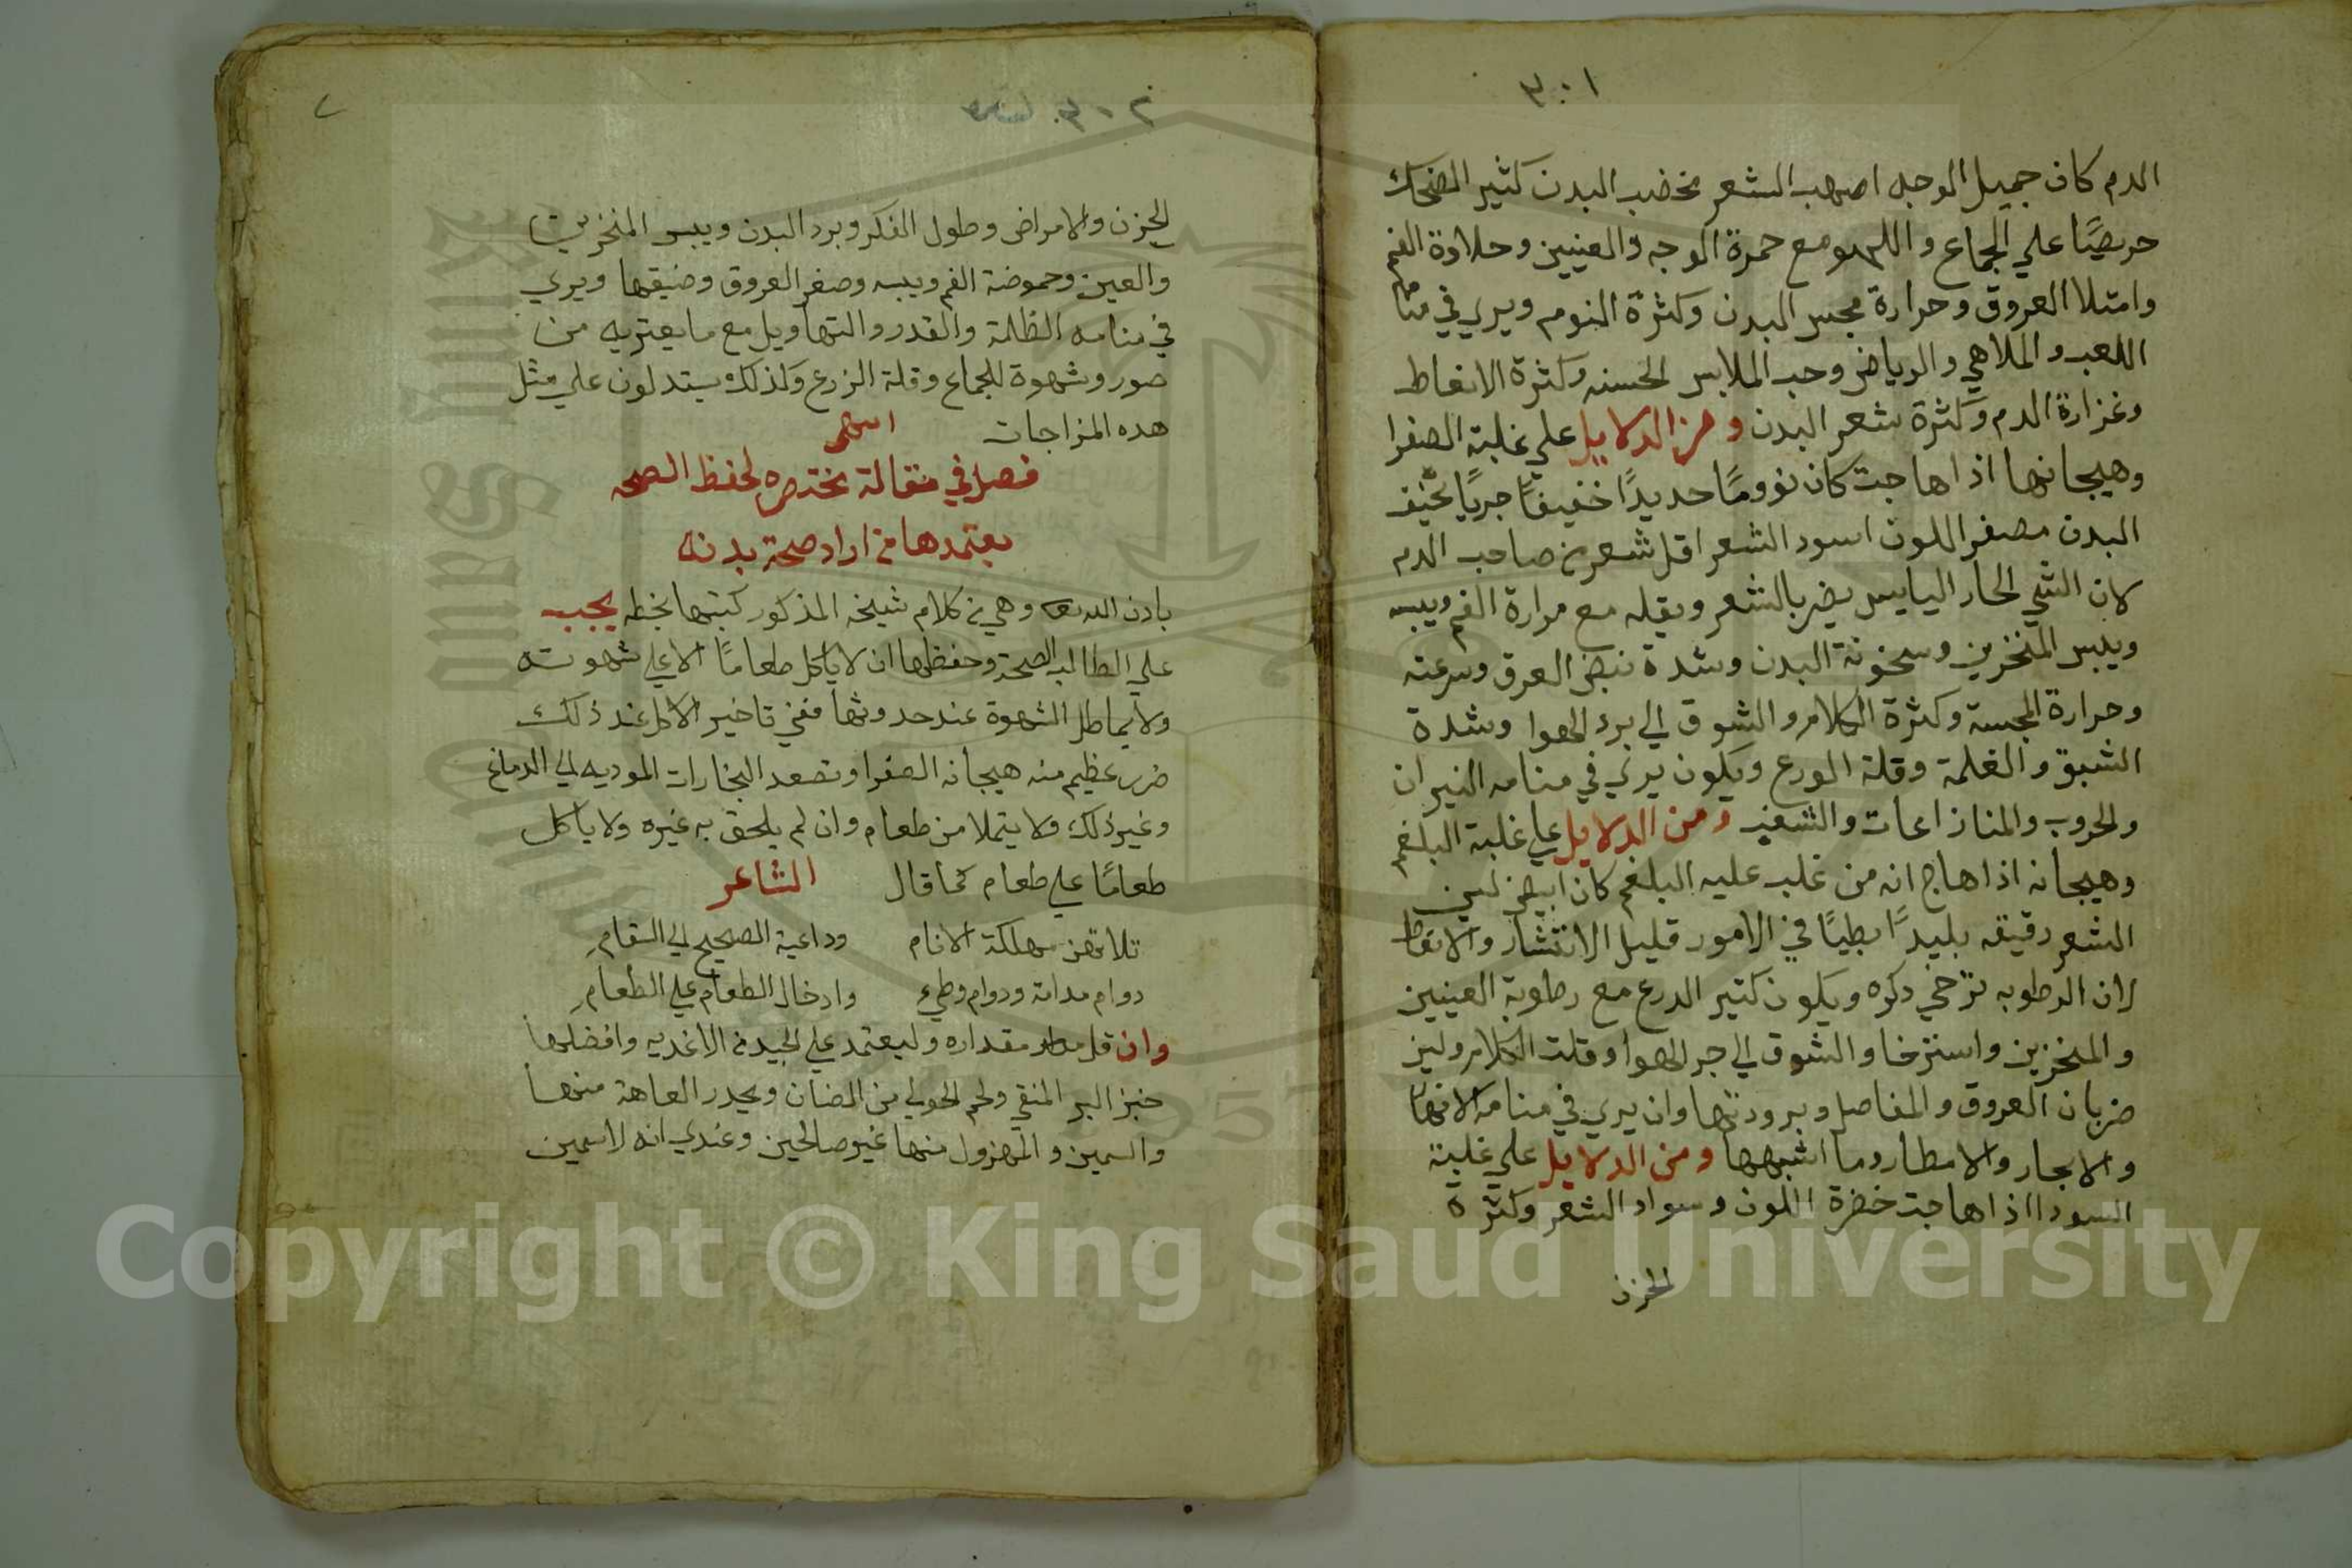 ٣٠١
الدم كان جميل الوجه اصهب الشعر مخضب البدن كثير الضحك
حريصًا علي الجماع واللهو مع حمرة الوجه والعينين وحلاوة الفم
وامتلا العروق وحرارة مجس البدن وكثرة النوم ويري في منامه
اللعب والملاهي والرياض وحب الملابس الحسنه وكثرة الانعاظ
وغزارة الدم وكثرة شعر البدن ومن الدلايل علي غلبة الصفرا
وهيجانها اذا هاجت كان نوومًا حديدًا خفيفًا جريًا نحيف
البدن مصفر اللون اسود الشعر اقل شعر من صاحب الدم
لان الشي الحار اليابس يضر بالشعر ويقله مع مرارة الفم ويبسه
ويبس المنخرين وسخونة البدن وشدة نبض العرق وسرعته
وحرارة المجسة وكثرة الكلام والشوق الي برد الهوا وشدة
الشبق والغلمة وقلة الورع ويكون يري في منامه النيران
والحروب والمنازاعات والشغب ومن الدلايل علي غلبة البلغم
وهيجانه اذا هاج انه من غلب عليه البلغم كان ابيض لين
الشعر رقيقه بليدًا بطيًا في الامور قليل الانتشار والانعاظ
لان الرطوبه ترخي دكره ويكون كتير الدرع مع رطوبة العينين
والمنخرين واسترخا والشوق الي حر الهوا وقلت الكلام ولين
ضربان العروق والمفاصل وبرودتها وان يري في منامه الانهار
والابحار والامطار وما اشبهها ومن الدلايل علي غلبة
السودا اذا هاجت خضرة اللون وسواد الشعر وكثرة
الحزن
٣٠٢
٧
الحزن والامراض وطول الفكر وبرد البدن ويبس المنخرين
والعين وحموضة الفم ويبسه وصغر العروق وضيقها ويري
في منامه الظلمة والقدر والتهاويل مع ما يعتريه من
صور وشهوة للجماع وقلة الزرع وكذلك يستدلون علي مثل
هده المزاجات انتهى
فصل في مقالة مختصره لحفظ الصحه
يعتمدها من اراد صحة بدنه
بادن الله وهي من كلام شيخه المذكور كتبتها بخطه يجب
علي الطالب الصحة وحفظها ان لا ياكل طعامًا الا علي شهوته
ولا يماطل الشهوة عند حدوثها ففي تاخير الاكل عند ذلك
ضرر عظيم منه هيجانه الصفرا وتصعد البخارات الموديه الي الدماغ
وغير ذلك ولا يتملا من طعام وان لم يلحق به غيره ولا ياكل
طعامًا علي طعام كما قال الشاعر
ثلاث هن مهلكة الانام وداعية الصحيح الي السقام
دوام مدامة ودوام وطيء وادخال الطعام علي الطعام
وان قل مقداره وليعتمد علي الجيد من الاغديه وافضلها
خبز البر المنقي ولحم الحولي من الضان ويحدر العاهة منها
والسمين والمهزول منها غير صالحين وعندي انه لاسمين
Copyright © King Saud University